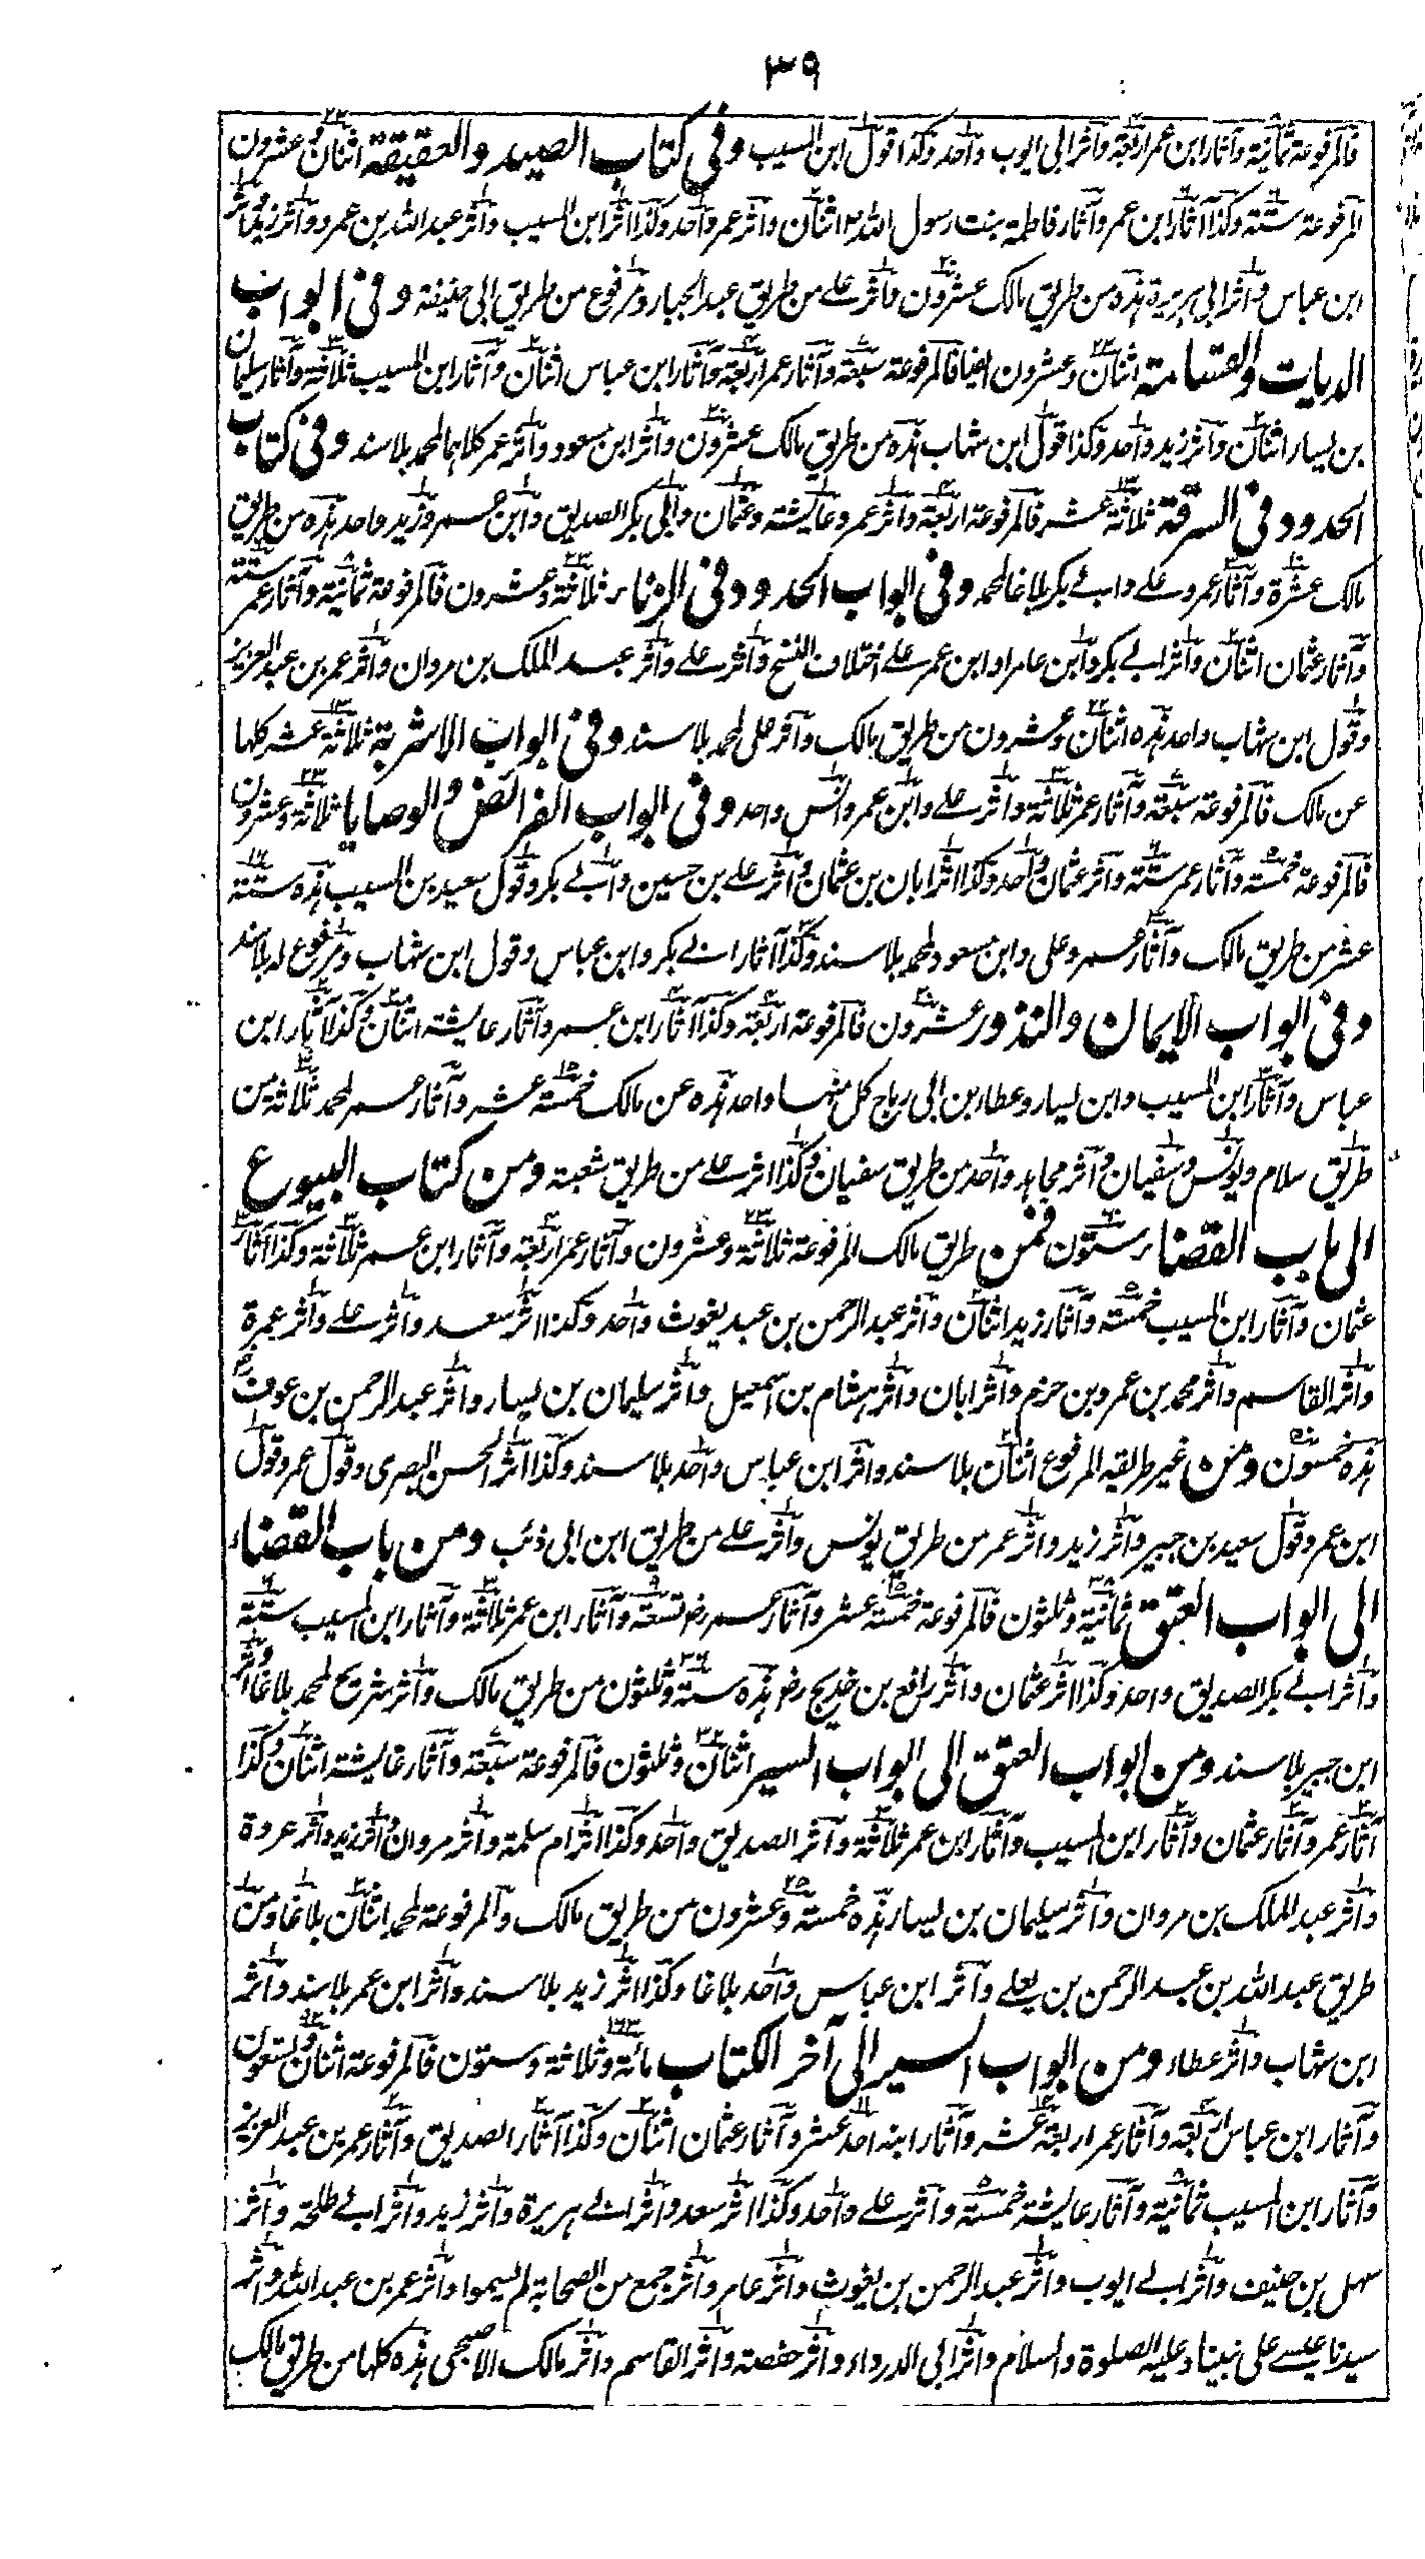 ٣٩
فالمرفوعة ثمانية وآثار ابن عمر اربعة واثر ابى ايوب واحد وكذا قول ابن المسيب وفى كتاب الصيد والعقيقة اثنان وعشرون
المرفوعة ستة وكذا آثار ابن عمر وآثار فاطمة بنت رسول الله اثنان واثر عمر واحد وكذا اثر ابن المسيب واثر عبد الله بن عمرو واثر زيد واثر
ابن عباس واثر ابى هريرة هذه من طريق مالك عشرون واثر على من طريق عبد الجبار ومرفوع من طريق ابى حنيفة وفى ابواب
الديات والقسامة اثنان وعشرون ايضا فالمرفوعة سبعة وآثار عمر اربعة وآثار ابن عباس اثنان وآثار ابن المسيب ثلاثة وآثار سليمان
بن يسار اثنان واثر زيد واحد وكذا قول ابن شهاب هذه من طريق مالك عشرون واثر ابن مسعود واثر عمر كلاهما لمحمد بلا سند وفى كتاب
الحدود فى السرقة ثلاثة عشر فالمرفوعة اربعة واثر عمر وعايشة وعثمان وابى بكر الصديق وابن عمر وزيد واحد هذه من طريق
مالك عشرة وآثار عمر وعلى وابى بكر بلاغا لمحمد وفى ابواب الحدود فى الزنا ثلاثة وعشرون فالمرفوعة ثمانية وآثار عمر ستة
وآثار عثمان اثنان واثر ابى بكر وابن عامر او ابن عمر على اختلاف النسخ واثر على واثر عبد الملك بن مروان واثر عمر بن عبد العزيز
وقول ابن شهاب واحد هذه اثنان وعشرون من طريق مالك واثر على لمحمد بلا سند وفى ابواب الاشربة ثلاثة عشر كلها
عن مالك فالمرفوعة سبعة وآثار عمر ثلاثة واثر على وابن عمر وانس واحد وفى ابواب الفرائض والوصايا ثلاثة وعشرون
فالمرفوعة خمسة وآثار عمر ستة واثر عثمان واحد وكذا اثر ابان بن عثمان واثر على بن حسين وابى بكر وقول سعيد بن المسيب هذه ستة
عشر من طريق مالك وآثار عمر وعلى وابن مسعود لمحمد بلا سند وكذا آثار ابى بكر وابن عباس وقول ابن شهاب ومرفوع له بلا سند
وفى ابواب الايمان والنذور عشرون فالمرفوعة اربعة وكذا آثار ابن عمر وآثار عايشة اثنان وكذا آثار ابن
عباس وآثار ابن المسيب وابن يسار وعطاء بن ابى رباح كل منها واحد هذه عن مالك خمسة عشر وآثار عمر لمحمد ثلاثة من
طريق سلام ويونس وسفيان واثر مجاهد واحد من طريق سفيان وكذا اثر على من طريق شعبة ومن كتاب البيوع
الى باب القضاء ستون فمن طريق مالك المرفوعة ثلاثة وعشرون وآثار عمر اربعة وآثار ابن عمر ثلاثة وكذا آثار
عثمان وآثار ابن المسيب خمسة وآثار زيد اثنان واثر عبد الرحمن بن عبد يغوث واحد وكذا اثر سعد واثر على واثر عمرة
واثر القاسم واثر محمد بن عمرو بن حزم واثر ابان واثر هشام بن اسمعيل واثر سليمان بن يسار واثر عبد الرحمن بن عوف
هذه خمسون ومن غير طريقه المرفوع اثنان بلا سند واثر ابن عباس واحد بلا سند وكذا اثر الحسن البصرى وقول عمر وقول
ابن عمر وقول سعيد بن جبير واثر زيد واثر عمر من طريق يونس واثر على من طريق ابن ابى ذئب ومن باب القضاء
الى ابواب العتق ثمانية وثلثون فالمرفوعة خمسة عشر وآثار عمر رض تسعة وآثار ابن عمر ثلاثة وآثار ابن المسيب ستة
واثر ابى بكر الصديق واحد وكذا اثر عثمان واثر رافع بن خديج رض هذه ستة وثلثون من طريق مالك واثر شريح لمحمد بلاغا واثر
ابن جبير بلا سند ومن ابواب العتق الى ابواب السير اثنان وثلثون فالمرفوعة سبعة وآثار عايشة اثنان وكذا
آثار عمر وآثار عثمان وآثار ابن المسيب وآثار ابن عمر ثلاثة واثر الصديق واحد وكذا اثر ام سلمة واثر مروان واثر زيد واثر عروة
واثر عبد الملك بن مروان واثر سليمان بن يسار هذه خمسة وعشرون من طريق مالك والمرفوعة لمحمد اثنان بلاغا ومن
طريق عبد الله بن عبد الرحمن بن يعلى واثر ابن عباس واحد بلاغا وكذا اثر زيد بلا سند واثر ابن عمر بلا سند واثر
ابن شهاب واثر عطاء ومن ابواب السير الى آخر الكتاب مائة وثلاثة وستون فالمرفوعة اثنان وتسعون
وآثار ابن عباس اربعة وآثار عمر اربعة عشر وآثار ابنه احد عشر وآثار عثمان اثنان وكذا آثار الصديق وآثار عمر بن عبد العزيز
وآثار ابن المسيب ثمانية وآثار عايشة خمسة واثر على واحد وكذا اثر سعد واثر ابى هريرة واثر زيد واثر ابى طلحة واثر
سهل بن حنيف واثر ابى ايوب واثر عبد الرحمن بن يغوث واثر عامر واثر جمع من الصحابة لم يسموا واثر عمر بن عبد الله واثر
سيدنا عيسى على نبينا وعليه الصلوة والسلام واثر ابى الدرداء واثر حفصة واثر القاسم واثر مالك الاصبحى هذه كلها من طريق مالك